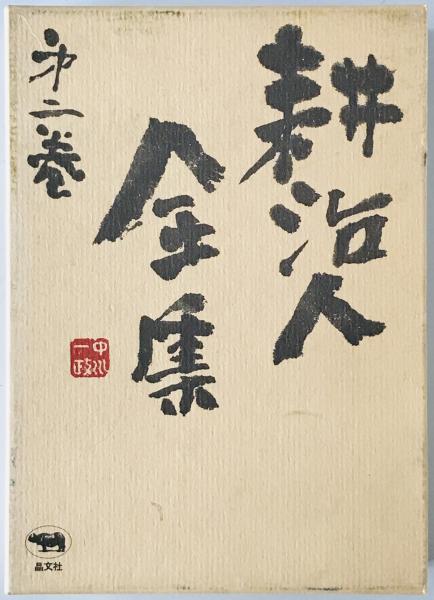 耕治人
全集
第二巻
中川
一政
晶文社